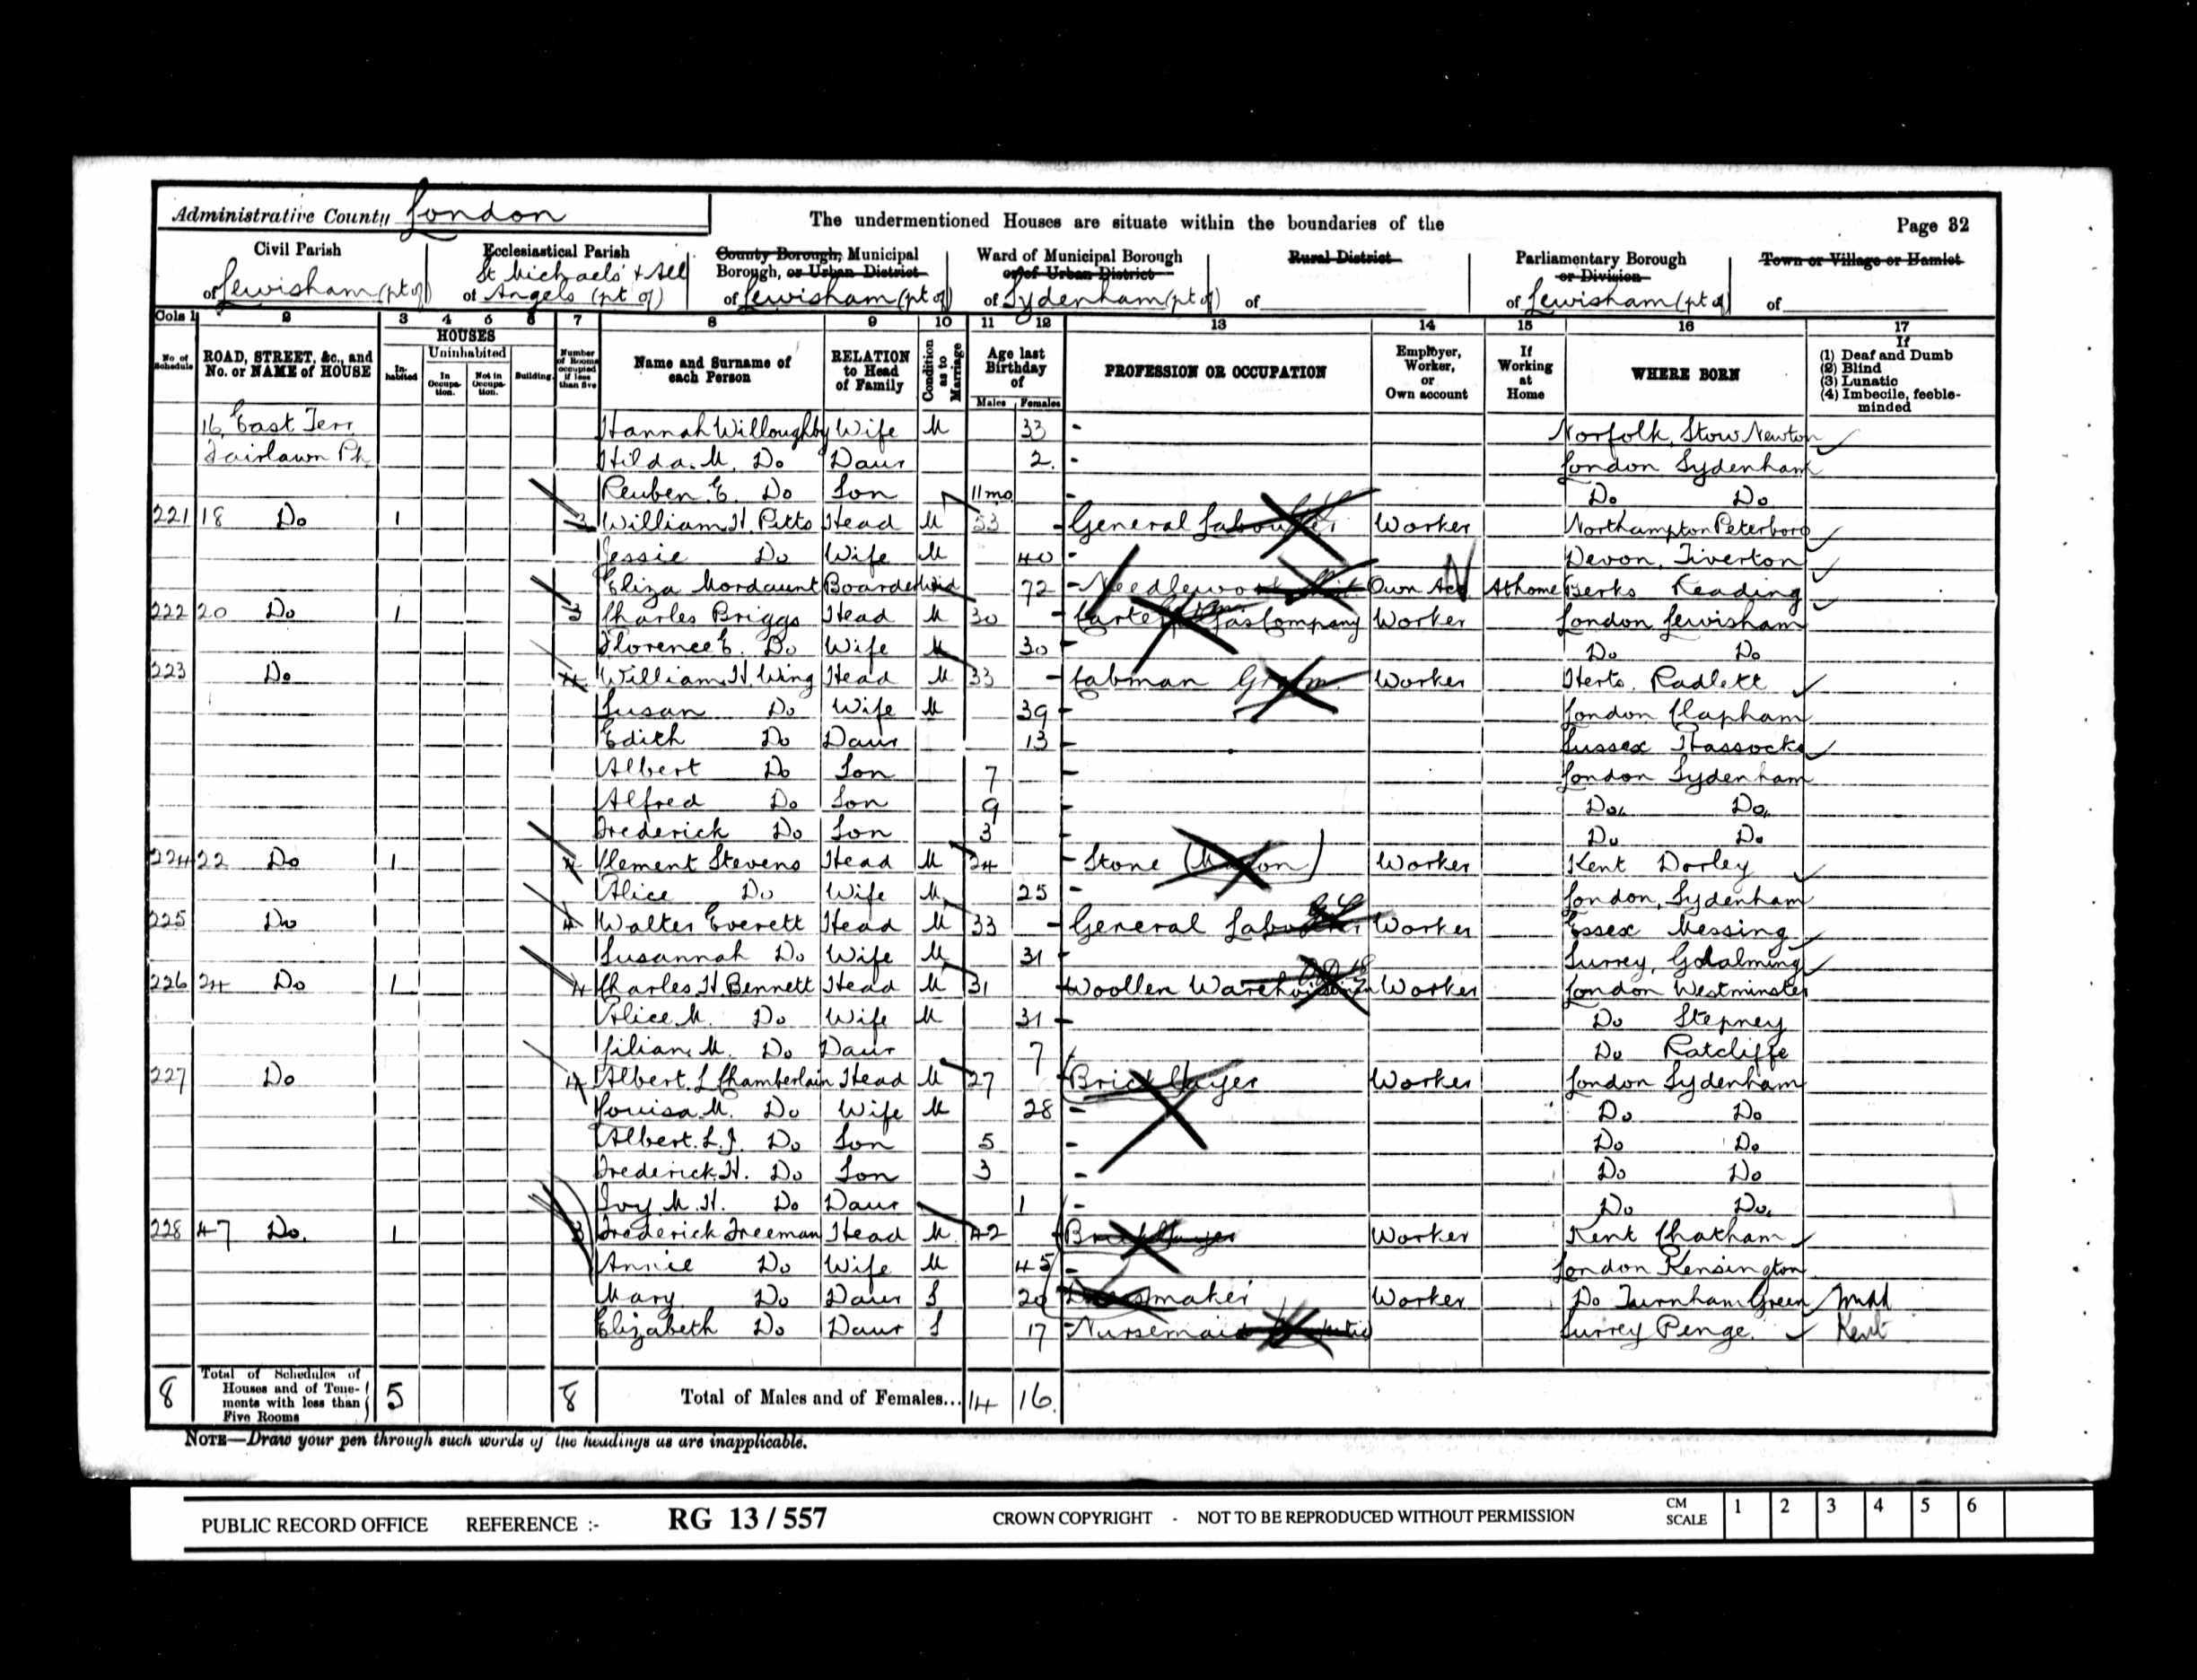 Administrative County London
The undermentioned Houses are situate within the boundaries of the
Page 32
Civil Parish
of Lewisham (pt of)
Ecclesiastical Parish
St Michaels' & All
of Angels (pt of)
County Borough, Municipal
Borough, or Urban District
of Lewisham (pt of)
Ward of Municipal Borough
or of Urban District
of Sydenham (pt of)
Rural District
of
Parliamentary Borough
or Division
of Lewisham (pt of)
Town or Village or Hamlet
of
Cols 1 2 3 4 5 6 7 8 9 10 11 12 13 14 15 16 17
No of Schedule
ROAD, STREET, &c., and No. or NAME of HOUSE
HOUSES
In-habited
Uninhabited
In Occupa-tion.
Not in Occupa-tion.
Building.
Number of Rooms occupied if less than five
Name and Surname of each Person
RELATION to Head of Family
Condition as to Marriage
Age last Birthday of
Males Females
PROFESSION OR OCCUPATION
Employer, Worker, or Own account
If Working at Home
WHERE BORN
If
(1) Deaf and Dumb
(2) Blind
(3) Lunatic
(4) Imbecile, feeble-minded
16 East Terr Hannah Willoughby Wife M 33 - Norfolk, Stow Newton
Fairlawn Pk Hilda. M. Do Daur 2. - London Sydenham
Reuben E. Do Son 11mo - Do Do
221 18 Do 1 3 William H. Pitts Head M 53 - General Labourer Worker Northampton Peterboro
Jessie Do Wife M 40 - Devon, Tiverton
Eliza Mordaunt Boarder Wid 72 - Needlework Own Acc At home Berks Reading
222 20 Do 1 3 Charles Briggs Head M 30 Carter Gas Company Worker London Lewisham
Florence E. Do Wife M 30 - Do Do
223 Do 4 William H. Wing Head M 33 - Cabman Groom Worker Herts. Radlett
Susan Do Wife M 39 - London Clapham
Edith Do Daur 13 - Sussex Hassocks
Albert Do Son 7 - London Sydenham
Alfred Do Son 9 - Do. Do.
Frederick Do Son 3 - Do Do
224 22 Do 1 4 Clement Stevens Head M 24 - Stone (Mason) Worker Kent
Alice Do Wife M 25 - London, Sydenham
225 Do 4 Walter Everett Head M 33 - General Labourer Worker Essex Messing
Susannah Do Wife M 31 Surrey, Godalming
226 24 Do 1 4 Charles H. Bennett Head M 31 Woollen Warehouseman Worker London Westminster
Alice M. Do Wife M 31 - Do Stepney
Lilian. M. Do Daur 7 Do Ratcliffe
227 Do 4 Albert. L Chamberlain Head M 27 Bricklayer Worker London Sydenham
Louisa M. Do Wife M 28 - Do Do
Albert. L. J. Do Son 5 - Do Do
Frederick. H. Do Son 3 - Do Do
Ivy. M. H. Do Daur 1 - Do Do.
228 47 Do. 1 3 Frederick Freeman Head M 42 Bricklayer Worker Kent Chatham
Annie Do Wife M 45 - London Kensington
Mary Do Daur S 20 Dressmaker Worker Do Turnham Green Midd
Elizabeth Do Daur S 17 - Nursemaid Surrey Penge. Kent
8 Total of Schedules of Houses and of Tene-ments with less than Five Rooms 5 8 Total of Males and of Females... 14 16.
NOTE—Draw your pen through such words of the headings as are inapplicable.
PUBLIC RECORD OFFICE REFERENCE :- RG 13 / 557 CROWN COPYRIGHT - NOT TO BE REPRODUCED WITHOUT PERMISSION CM SCALE 1 2 3 4 5 6